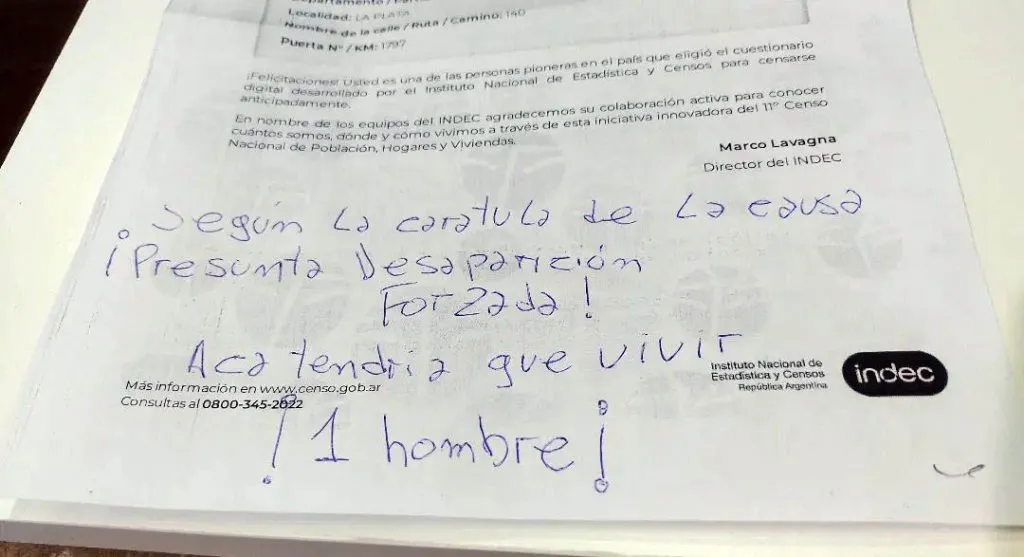 Departamento / Par
Localidad: LA PLATA
Nombre de la calle / Ruta / Camino: 140
Puerta Nº / KM: 1797
¡Felicitaciones! Usted es una de las personas pioneras en el país que eligió el cuestionario
digital desarrollado por el Instituto Nacional de Estadística y Censos para censarse
anticipadamente.
En nombre de los equipos del INDEC agradecemos su colaboración activa para conocer
cuántos somos, dónde y cómo vivimos a través de esta iniciativa innovadora del 11º Censo
Nacional de Población, Hogares y Viviendas.
Marco Lavagna
Director del INDEC
Según La caratula de La causa
¡Presunta Desaparición
Forzada!
Aca tendria que vivir
Instituto Nacional de
Estadística y Censos
República Argentina
indec
Más información en www.censo.gob.ar
Consultas al 0800-345-2022
¡1 hombre!